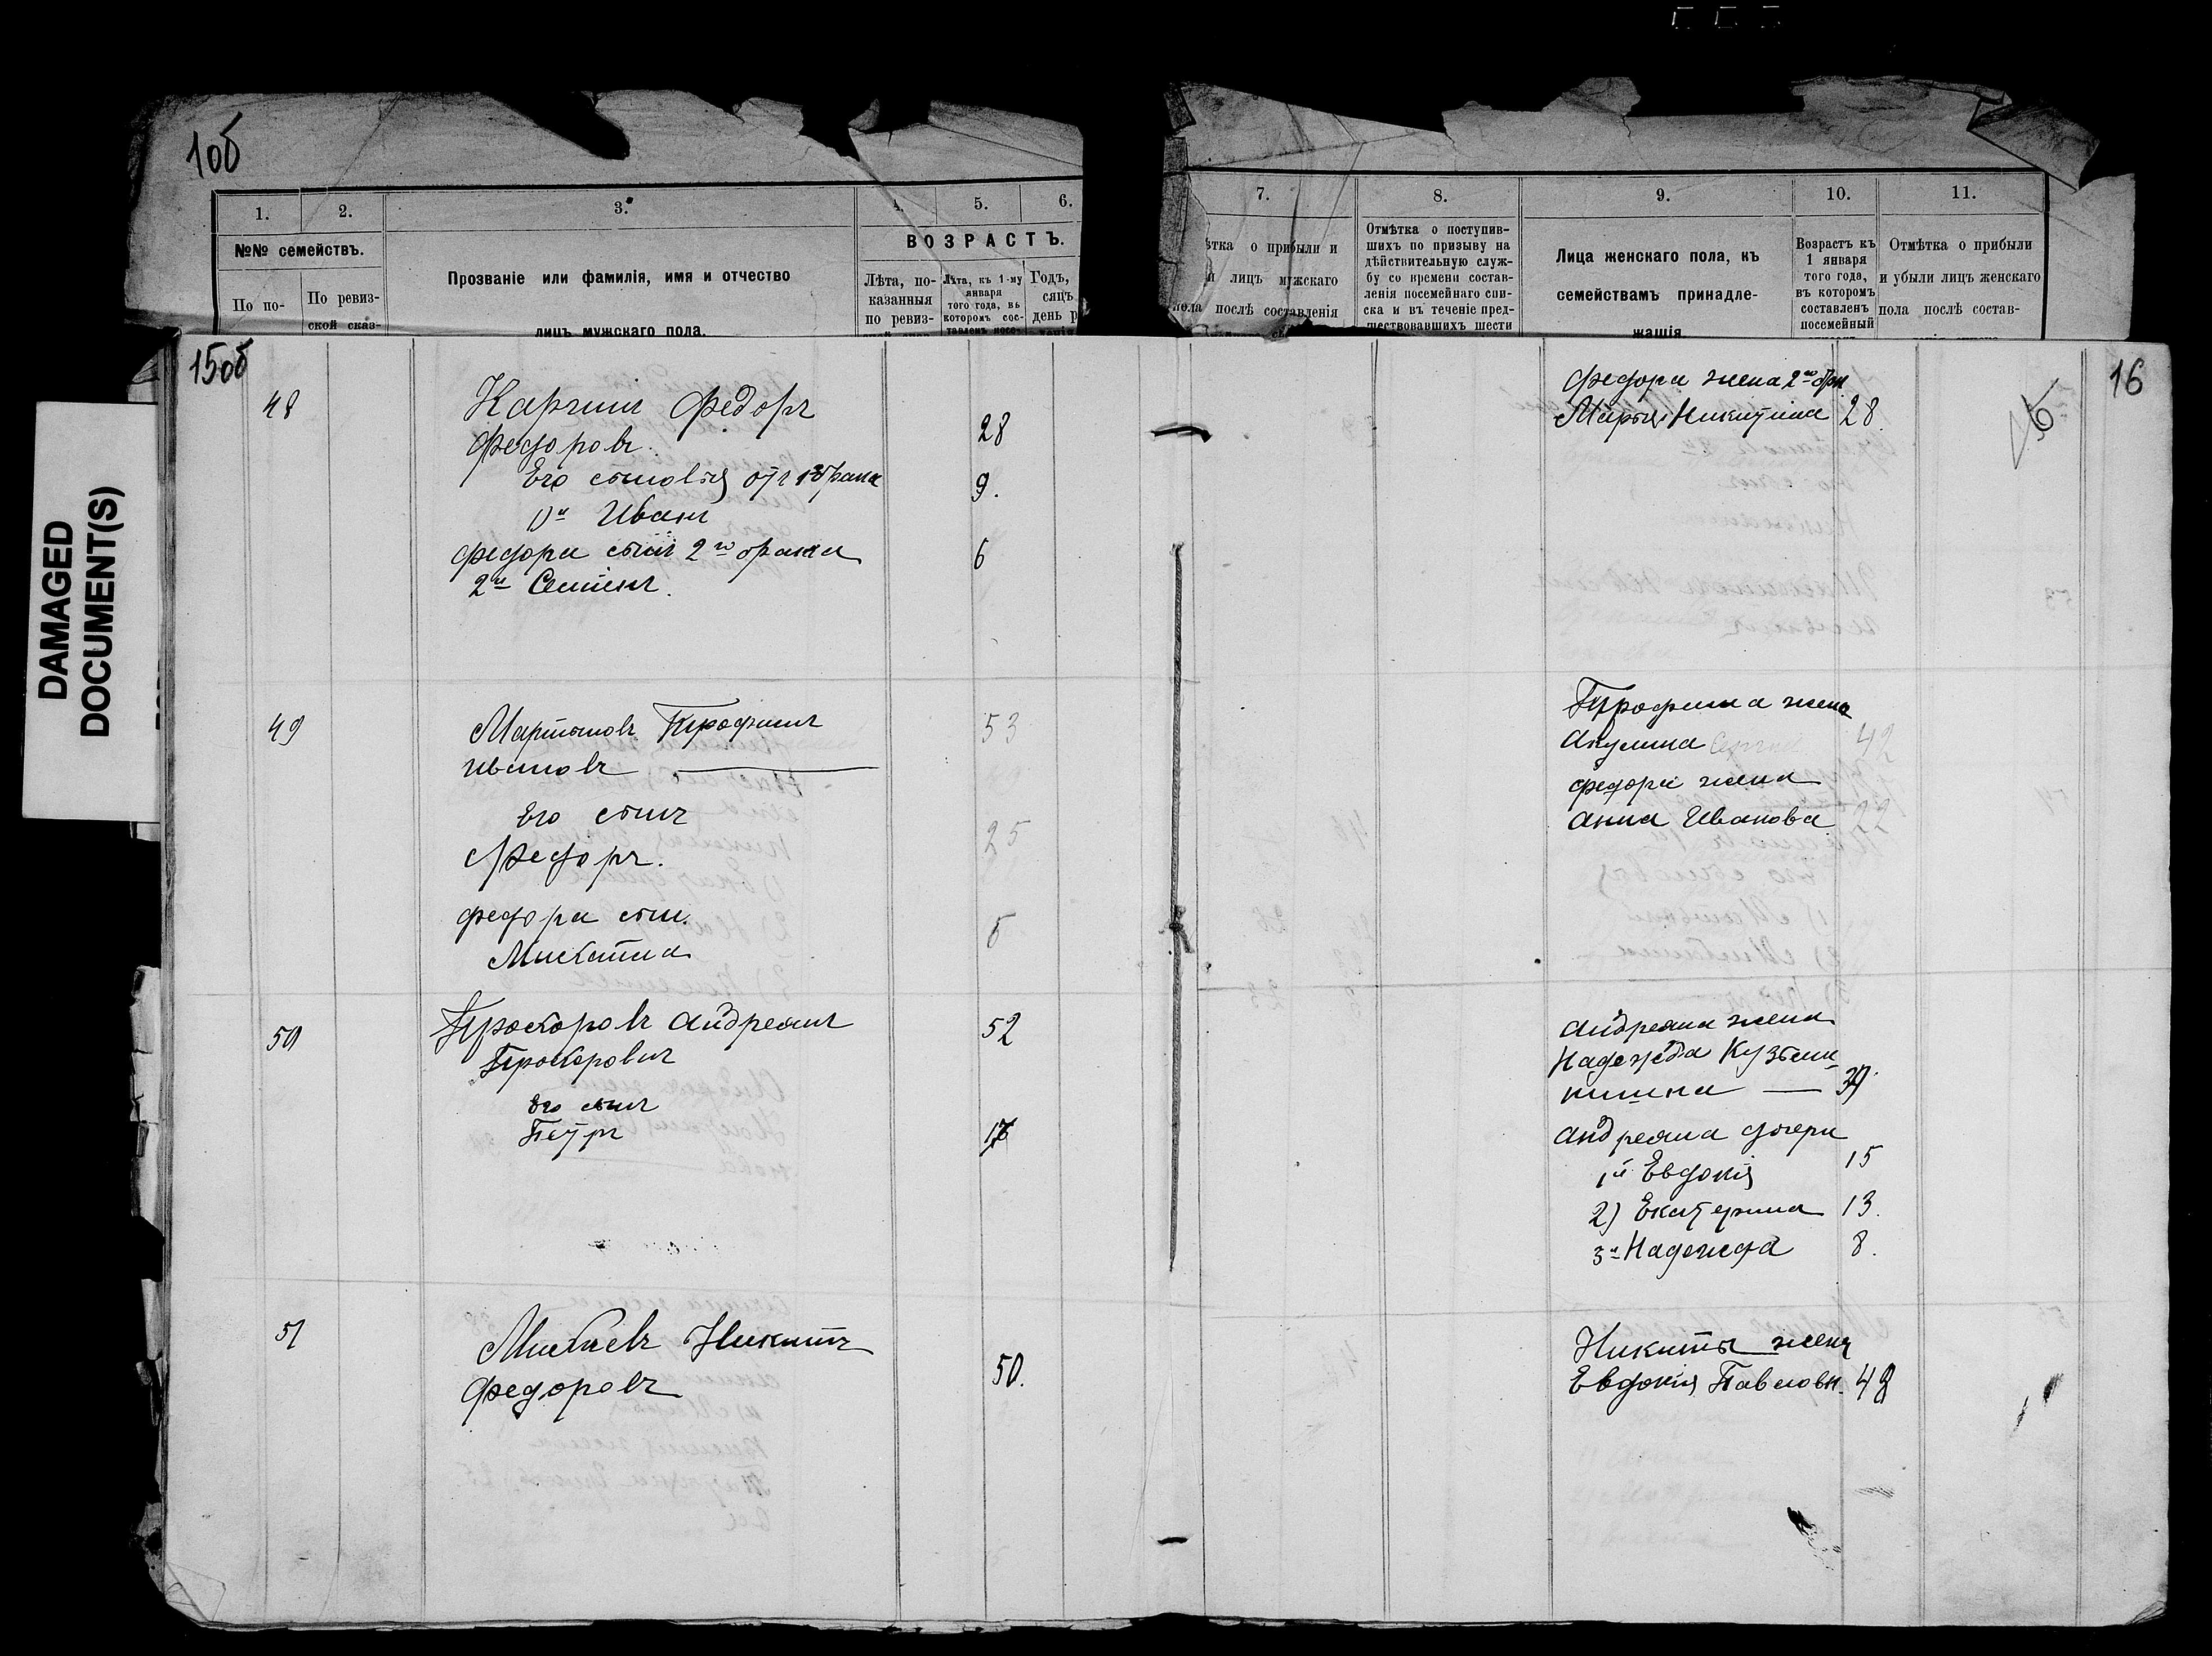 10б
1.
2.
3.
4.
5.
6.
№№ семействъ.
По по-
По ревиз-
ской сказ-
Прозваніе или фамилія, имя и отчество
лицъ мужскаго пола.
ВОЗРАСТЪ.
Лѣта, по-
казанныя
по ревиз-
Лѣта, къ 1-му
января
того года, въ
которомъ сос-
тавленъ посе-
Годъ,
сяцъ
день р
7.
8.
9.
10.
11.
ѣтка о прибыли и
и лицъ мужскаго
пола послѣ составленія
Отмѣтка о поступив-
шихъ по призыву на
дѣйствительную служ-
бу со времени состав-
ленія посемейнаго спи-
ска и въ теченіе пред-
шествовавшихъ шести
Лица женскаго пола, къ
семействамъ принадле-
жащія
Возрастъ къ
1 января
того года,
въ которомъ
составленъ
посемейный
Отмѣтка о прибыли
и убыли лицъ женскаго
пола послѣ состав-
DAMAGED
DOCUMENT(S)
15об
16
48
Федоръ
Федоровъ
28
Его сыновья отъ 1 брака
9.
1)й Иванъ
Федора сынъ 2го брака
6
2й Семенъ.
Федора жена 2го бр
Марья Никитина 28.
49
Мартыновъ Трофимъ
53
Ивановъ
Его сынъ
Федоръ.
25
Федора сын.
Трофима жена
Акулина 42
Федора жена
Анна Иванова 22
50
Прохоровъ Андреянъ
52
Прохоровичъ
Его сынъ
Петръ
Андреяна жена
Надежда Кузьми-
нишна
Андреяна дочери
1й Евдокія 15
2) Екатерина 13.
3я Надежда 8.
51
Михѣевъ Никита
50.
Федоровъ
Никиты жена
Евдокія Павловн. 48